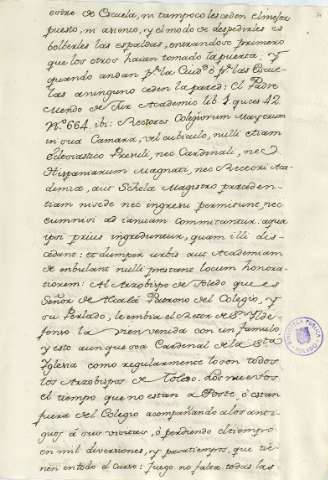 otro de Escuela, ni tampoco les ceden el mejor
puesto, ni asiento, y el modo de despedirles es
bolberles las espaldas, entrandose primero
que los otros hauen tomado la puerta, y
quando andan pr. la Ciud. ô pr. las Escue
las a ninguno ceden la pared: El Padre
Mendo de Jur Academic lib 1. ques 42
Nº 664 ibi: Rectores Colegiorum Mayorum
in sua Camara, vel cubiculo, nulli etiam
Eclesiastico Presuli, nec Cardinali, nec
Hispaniarum Magnati, nec Rectori Aca-
demiæ, aut Schola Magistro præceden-
tiam in sede nec ingresu permitunt, nec
cum ad ianuam commitantur
ipsi prius ingrediuntur, quam illi dis-
cedant: et dum per urbis aut Academiam
de ambulant nulli prestant locum honora
tiorem: Al Arzobispo de Toledo que es
Señor de Alcalá Patrono del Colegio, y
su Prelado, le embia el Retor de Sn. Ilde
fonso la vien venida con un famulo
y esto aunque sea Cardenal de la Sta.
Iglesia como regularmente lo son todos
los Arzobispos de Toledo. Los nuestros
el tiempo que no estan a Poste, ô estan
fuera del Colegio acompañando a los anti-
guos â sus visitas, ô perdiendo el tiempo
en mil diversiones, y pasatiempos, que tie-
nen en todo el Curso: Juego no falta todas las